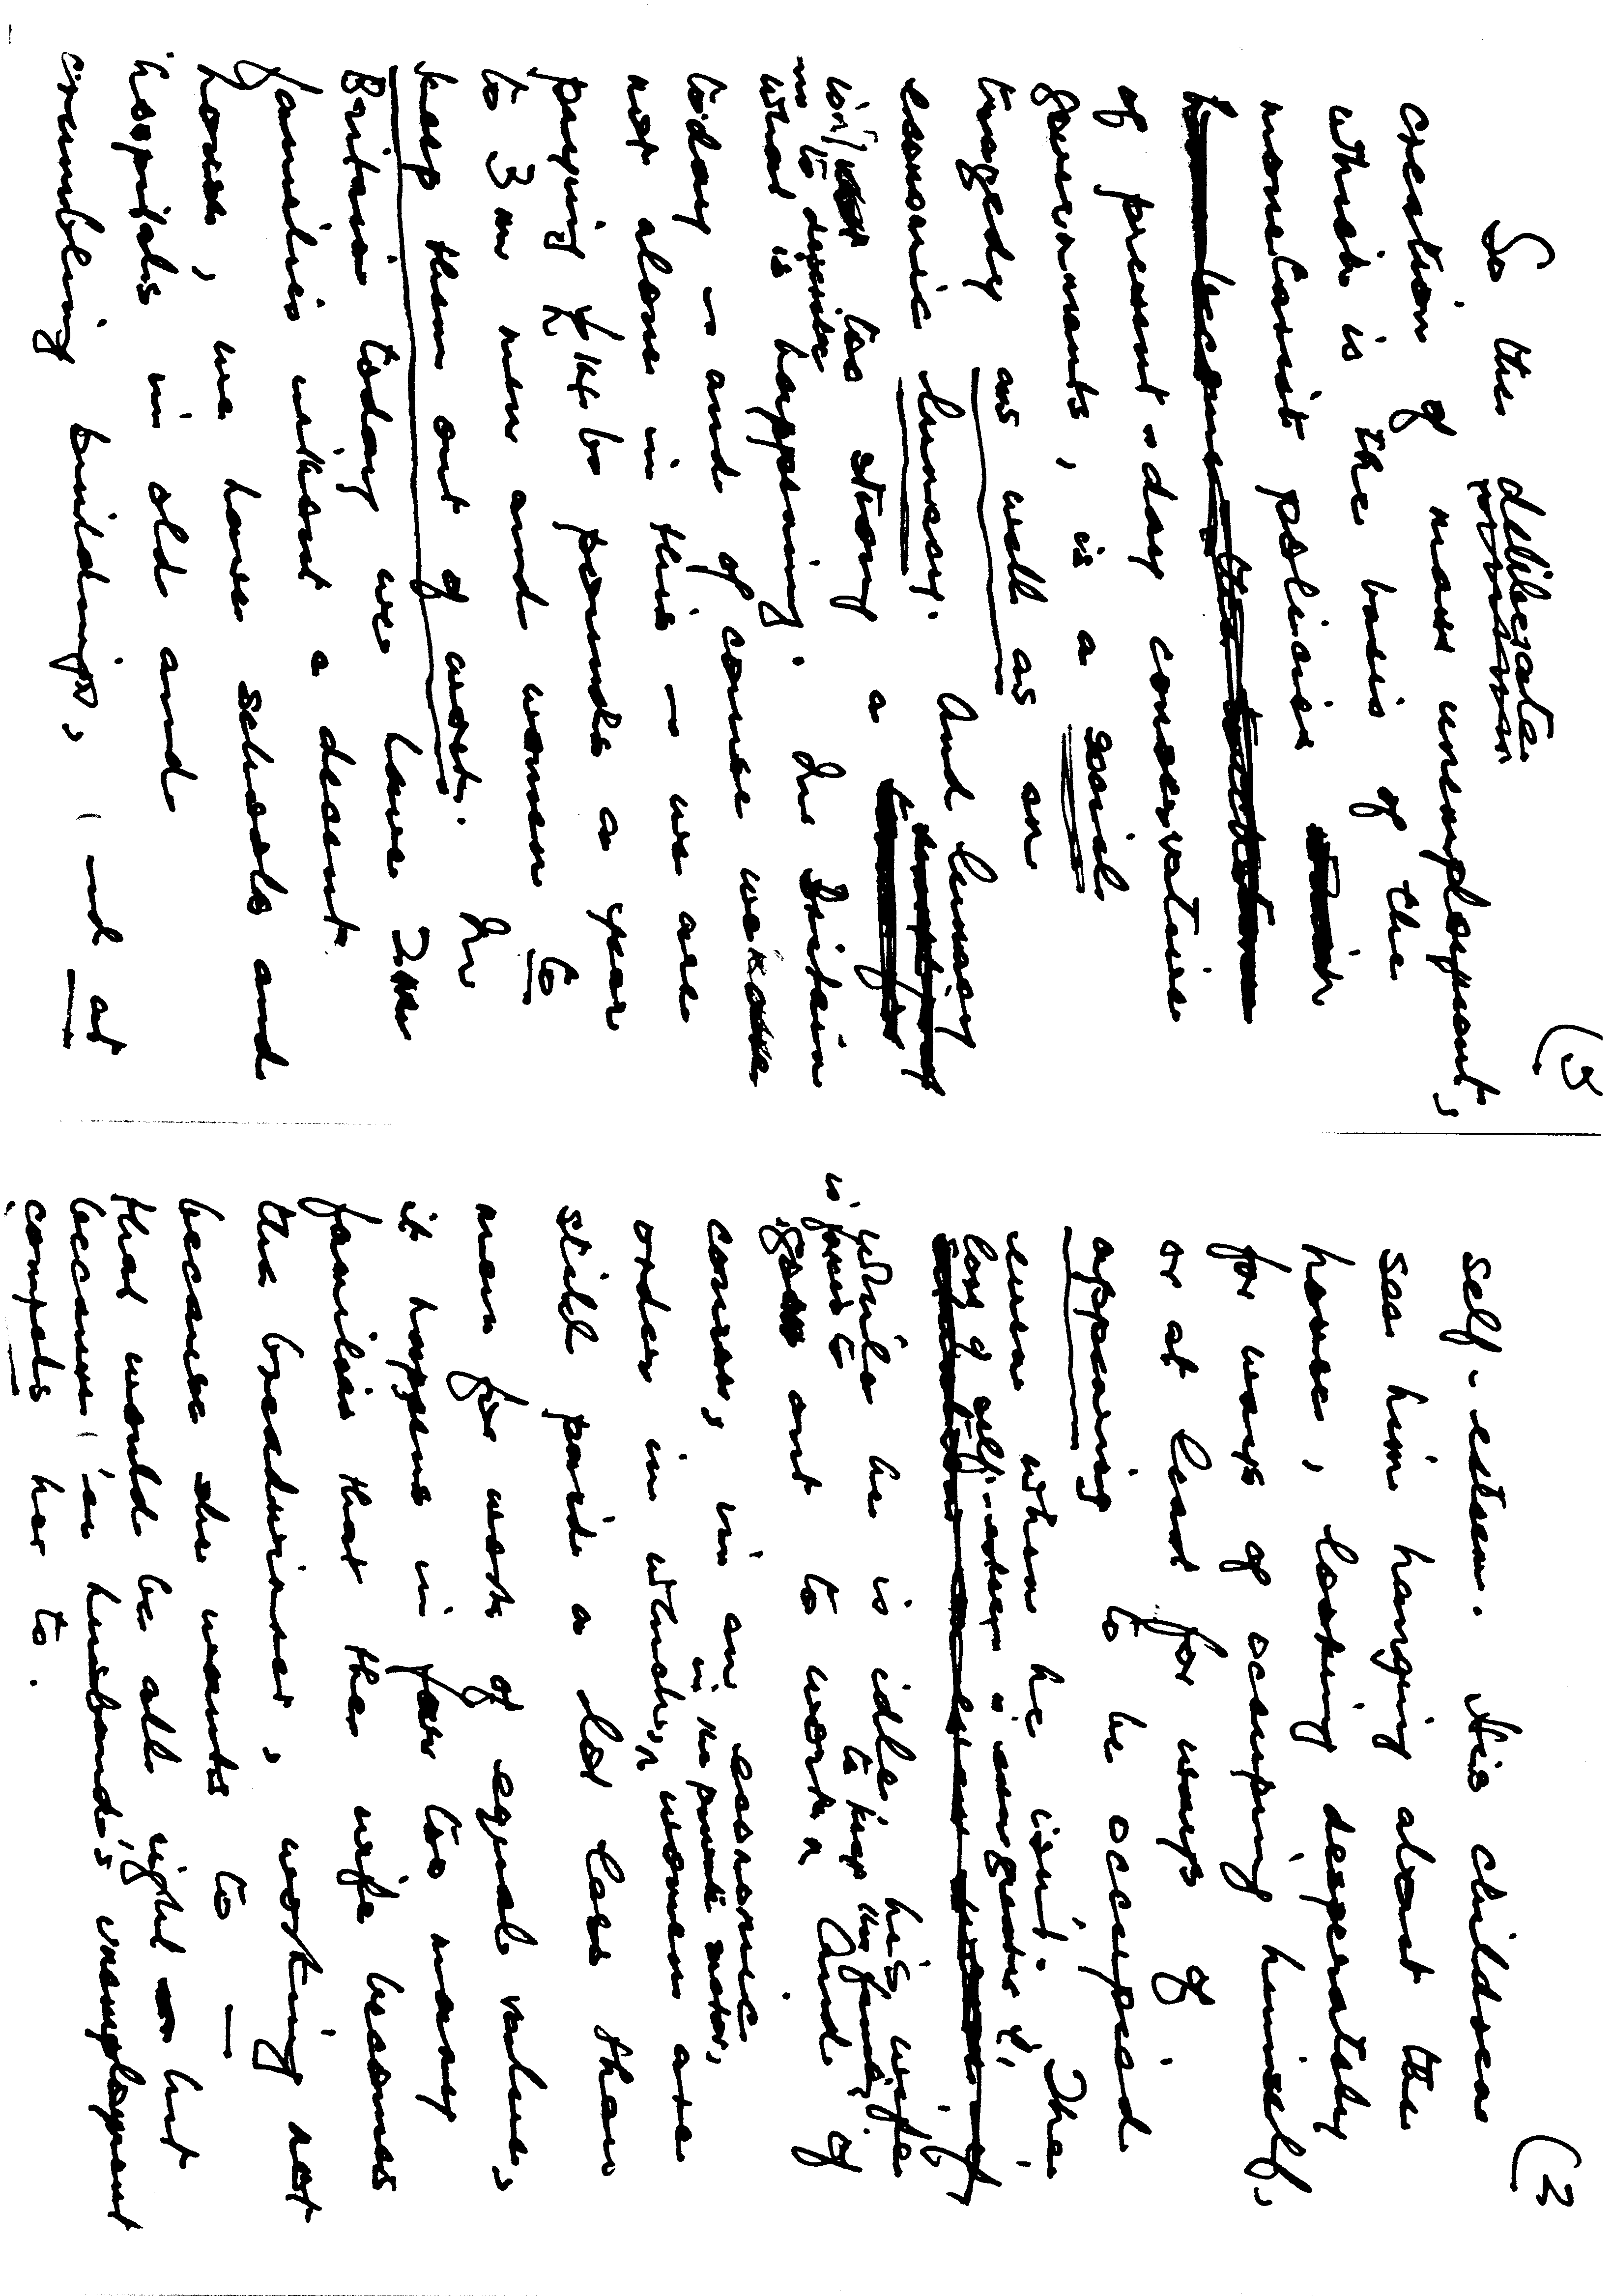 (3
So the deliberate
creation of mass unemployment,
which is the basis of the
monetarist policies
of present-day conservative
governments, is a social
tragedy as well as an
economic lunacy. And lunacy
too strong a
to describe
what is happening. In Britain
today - and of course we are
not alone in this - we are
paying £14 bn pounds a year
to 3 mn men and women to
keep them out of work. In
Britain today we have
families without a decent
house, we have schools and
hospitals in old and
crumbling buildings, and at
(2
self-esteem. His children
see him hanging about the
house, looking desperately
for ways of occupying himself,
or at least for ways of
appearing to be occupied
even when he isn't. The
loss of self-esteem is even greater if,
while he is idle, his wife
is forced to keep the family
out to work. And of
course, in an economic
in the private sector,
order in which, women are
still paid a lot less than
men for work of equal value,
it happens in far too many
families that the wife becomes
the breadwinner, working not
because she wants to -
that would be all right - but
because her husband's unemployment
compels her to.